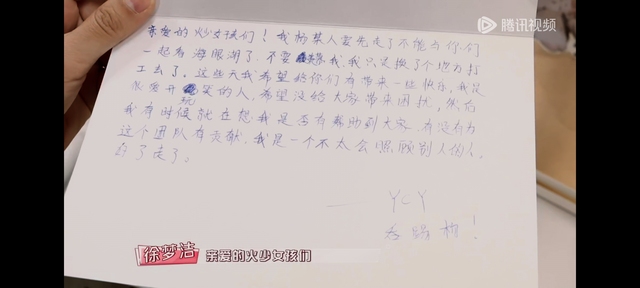 腾讯视频
亲爱的火少女孩们！我杨某人要先走了不能与你们
一起看洱眼湖了，不要 我，我只是换了个地方打
工去了。这些天我希望给你们有带来一些快乐，我是
很爱开玩笑的人，希望没给大家带来困扰，然后
我有时候就在想我是否有帮助到大家，有没有为
这个团队有贡献，我是一个不太会照顾别人的人。
好了走了。
—— YCY
徐梦洁 亲爱的火少女孩们